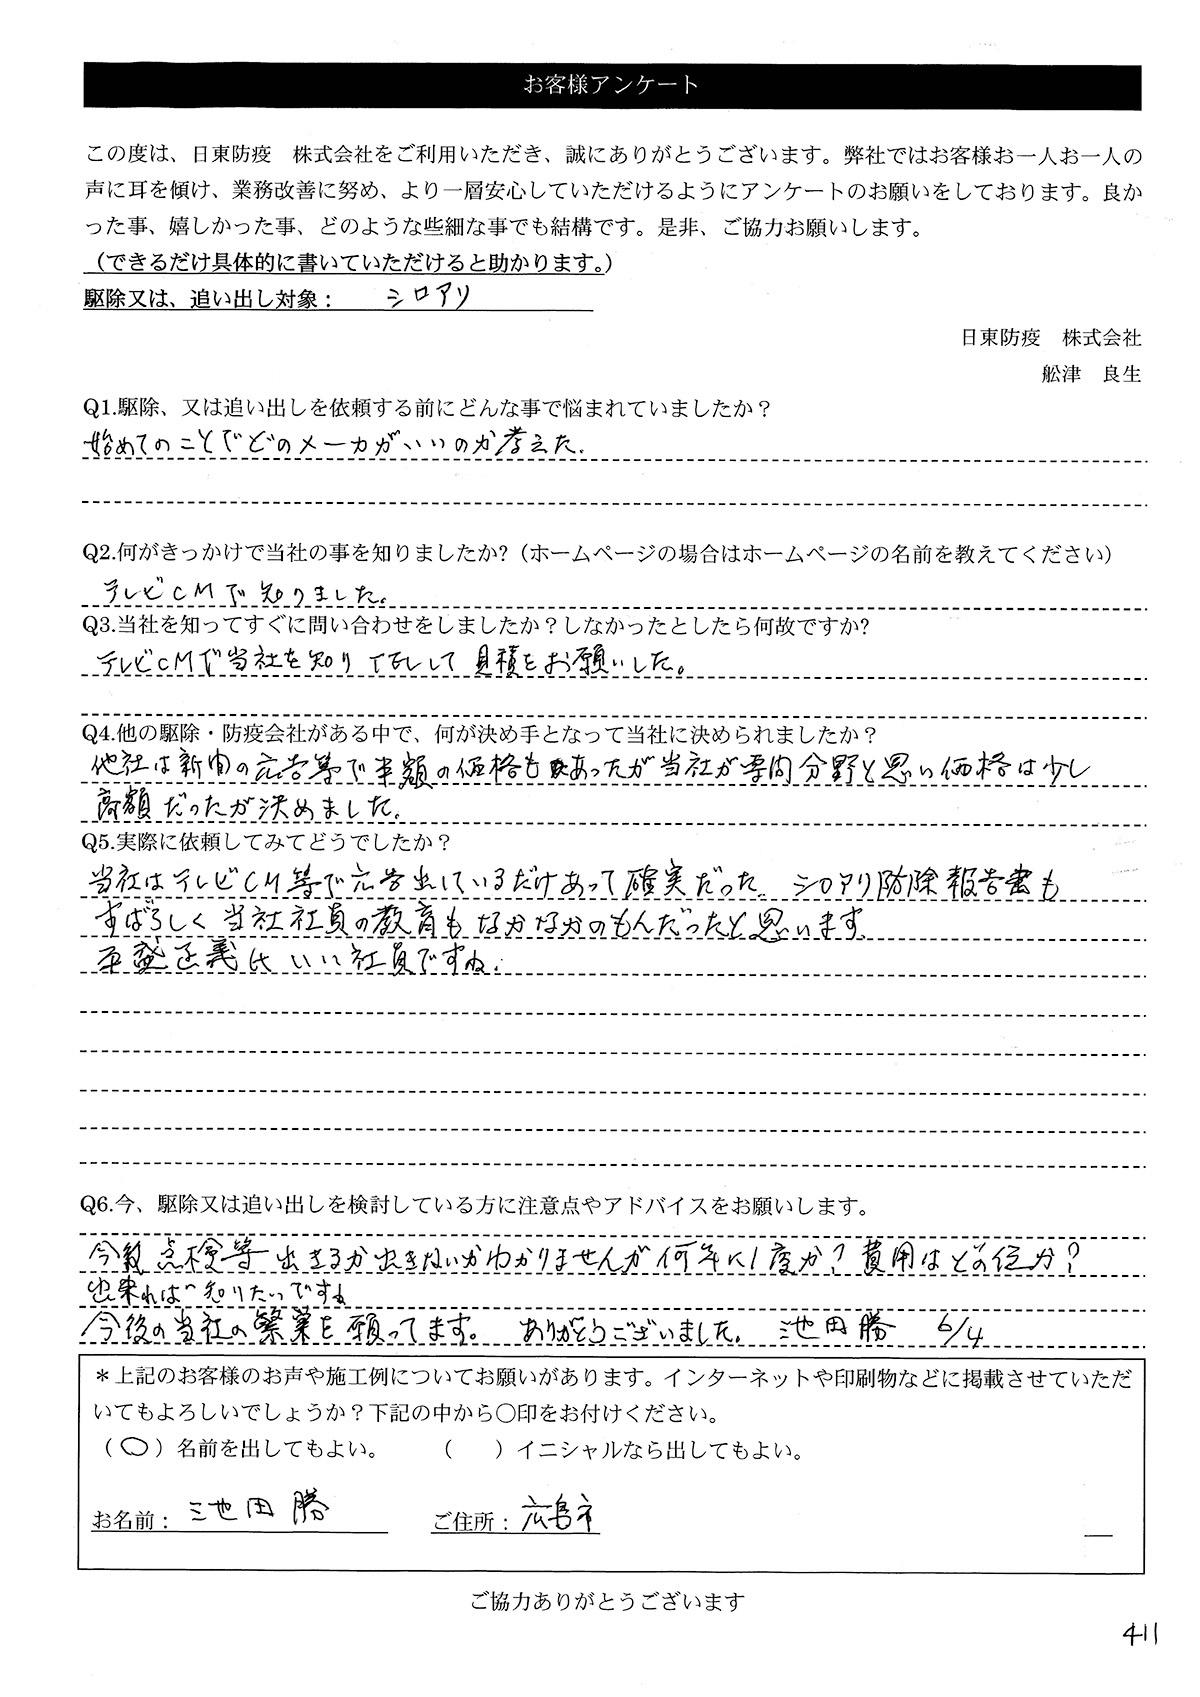 お客様アンケート
この度は、日東防疫　株式会社をご利用いただき、誠にありがとうございます。弊社ではお客様お一人お一人の
声に耳を傾け、業務改善に努め、より一層安心していただけるようにアンケートのお願いをしております。良か
った事、嬉しかった事、どのような些細な事でも結構です。是非、ご協力お願いします。
（できるだけ具体的に書いていただけると助かります。）
駆除又は、追い出し対象： シロアリ
日東防疫　株式会社
舩津　良生
Q1.駆除、又は追い出しを依頼する前にどんな事で悩まれていましたか？
始めてのことでどのメーカがいいのか考えた.
Q2.何がきっかけで当社の事を知りましたか?（ホームページの場合はホームページの名前を教えてください）
テレビCMで知りました。
Q3.当社を知ってすぐに問い合わせをしましたか？しなかったとしたら何故ですか?
テレビCMで当社を知り して見積をお願いした。
Q4.他の駆除・防疫会社がある中で、何が決め手となって当社に決められましたか？
他社は新聞の広告等で半額の価格もあったが当社が専門分野と思い価格は少し
高額だったが決めました.
Q5.実際に依頼してみてどうでしたか？
当社はテレビCM等で広告出しているだけあって確実だった. シロアリ防除報告書も
すばらしく当社社員の教育もなかなかのもんだったと思います.
正義氏いい社員ですね.
Q6.今、駆除又は追い出しを検討している方に注意点やアドバイスをお願いします。
今後点検等出きるか出きないかわかりませんが何年に1度か？費用はどの位か？
出来れば知りたいですね
今後の当社の繁業を願ってます。 ありがとうございました。 池田勝 6/4
＊上記のお客様のお声や施工例についてお願いがあります。インターネットや印刷物などに掲載させていただ
いてもよろしいでしょうか？下記の中から〇印をお付けください。
（〇）名前を出してもよい。 （　）イニシャルなら出してもよい。
お名前： 池田勝 ご住所： 広島市
ご協力ありがとうございます
411